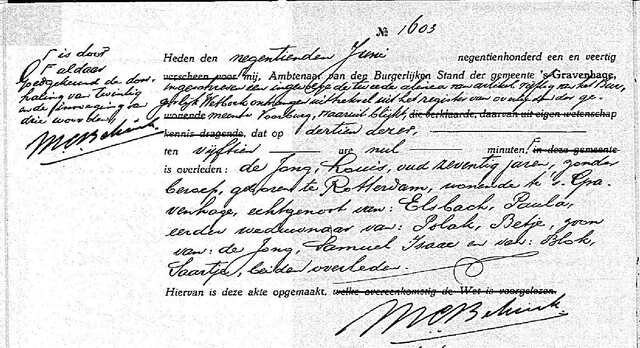 № 1603
is door
F aldaar
goedgekeurd de door
haling van twintig
en de
drie woorden.
Heden den negentienden Juni negentienhonderd een en veertig
verscheen voor mij, Ambtenaar van den Burgerlijken Stand der gemeente 's-Gravenhage,
ingeschreven ingevolge de tweede alinea van artikel vijftig van het Bur,
gerlijk Wetboek ontvangen uittreksel uit het register van overlijden der ge,
wonende meente Voorburg, waaruit blijkt, die verklaarde, daarvan uit eigen wetenschap
kennis dragende, dat op dertien dezer,
ten vijftien ure nul minuten! F in deze gemeente
is overleden: de Jong, Louis, oud zeventig jaren, zonder
beroep, geboren te Rotterdam, wonende te 's-Gra
venhage, echtgenoot van: Elsbach, Paula,
eerder weduwnaar van: Polak, Betje, zoon
van: de Jong, Samuel Isaac en van: Blok,
Saartje, beiden overleden.
Hiervan is deze akte opgemaakt, welke overeenkomstig de Wet is voorgelezen.